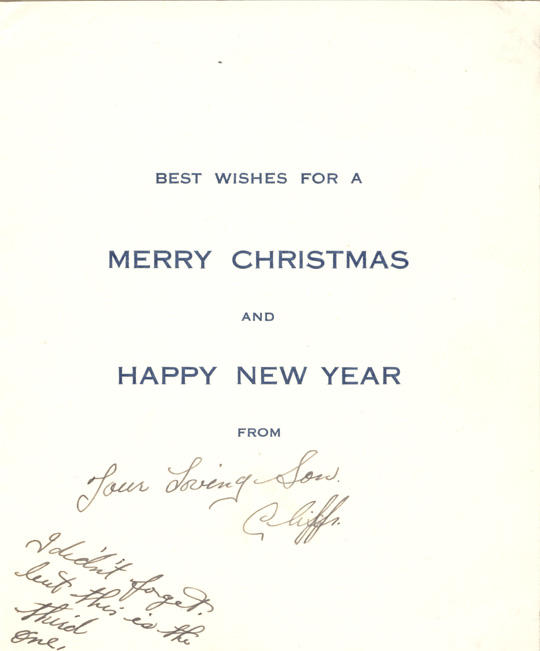 BEST WISHES FOR A
MERRY CHRISTMAS
AND
HAPPY NEW YEAR
FROM
Your Loving Son.
Cliff.
I didn't forget.
but this is the
third
one.